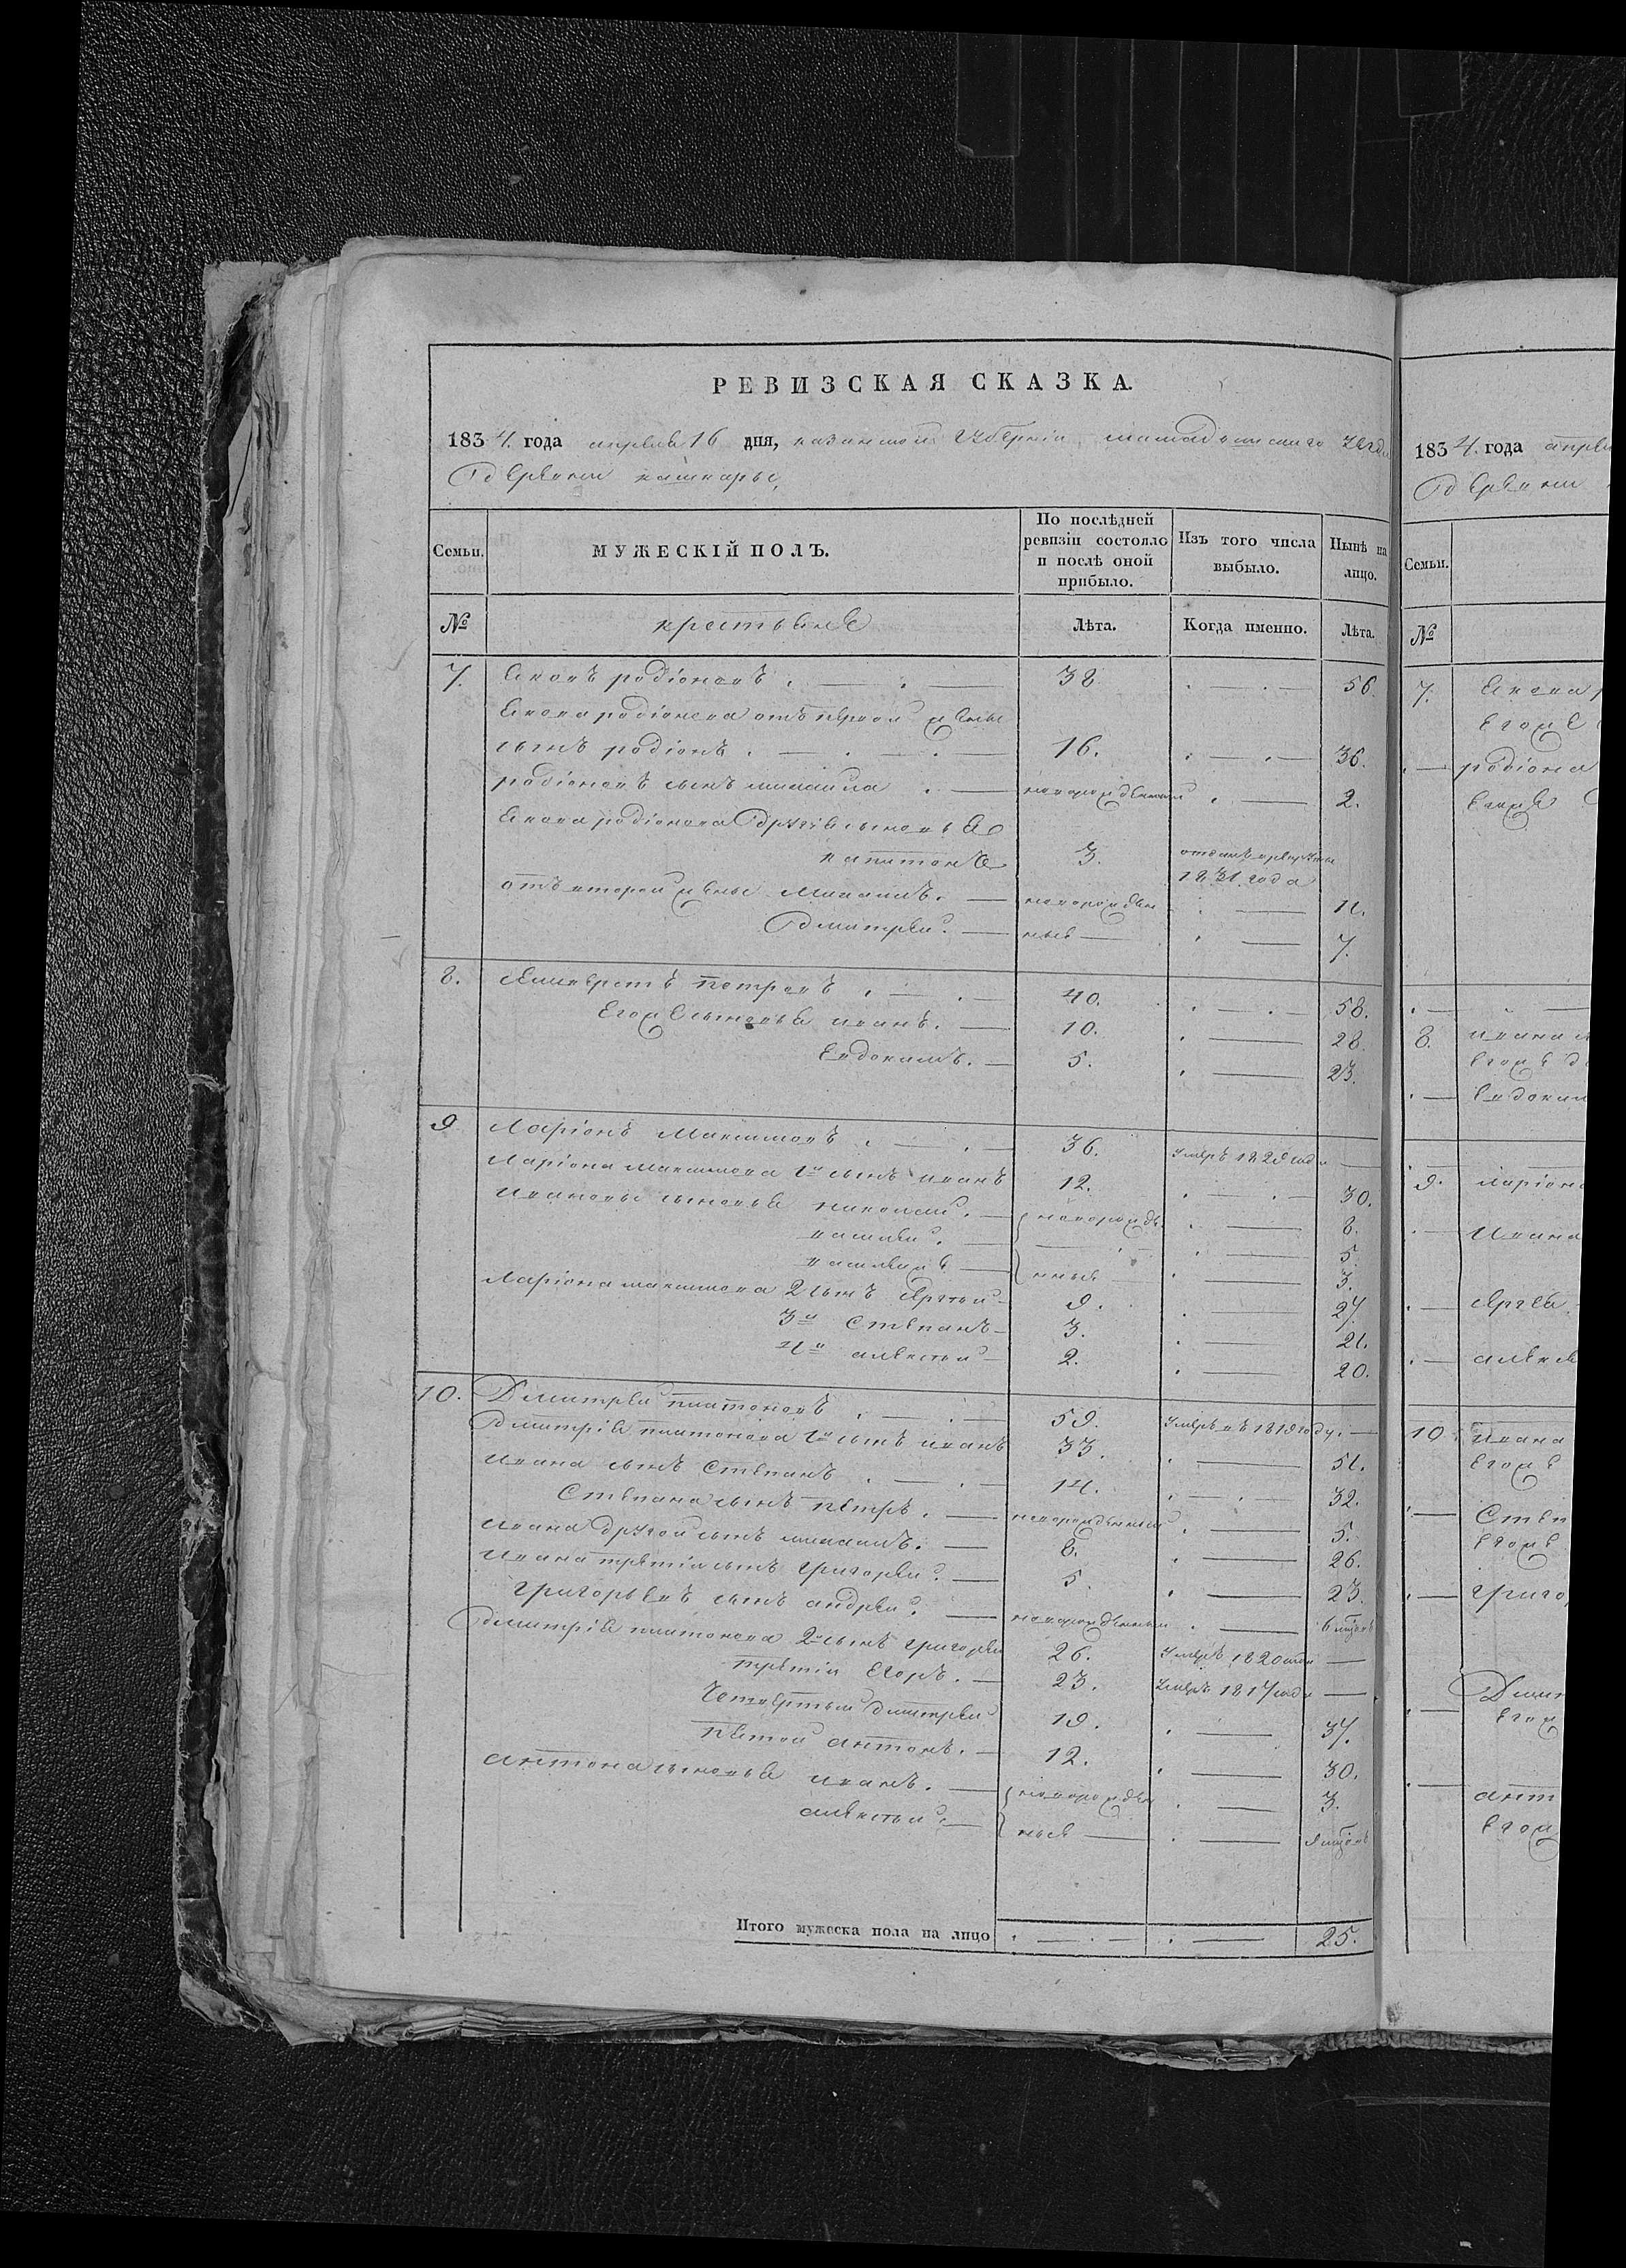 РЕВИЗСКАЯ СКАЗКА.
1834. года апреля 16 дня, казанской губернiи мамадышскаго уезда
деревни кашкары,
Семьи. МУЖЕСКІЙ ПОЛЪ. По послѣдней ревизіи состояло и послѣ оной прибыло. Изъ того числа выбыло. Нынѣ на лицо.
№ крестьяне Лѣта. Когда именно. Лѣта.
7. Яковъ родіоновъ 38 56.
Якова родіонова отъ первой жены
сынъ родіонъ 16. 36.
родіоновъ сынъ михаила новорожденный 2.
Якова родіонова другія сыновья
капитонъ 3. отданъ в рекруты 1831 года
отъ второй жены Михаилъ. новорожден 11.
дмитрей ные 7.
8. петровъ 40. 58.
Его сыновья иванъ. 10. 28.
Евдокимъ. 5. 23.
9 Ларіонъ Максимовъ 36. умеръ 1828 года
Ларіона максимова 1й сынъ иванъ 12. 30.
Ивановы сыновья николай. новорожде 8.
5.
нные 3.
Ларіона максимова 2 сынъ 9. 27.
3й Степанъ 3. 21.
4й алексей 2. 20.
10. Дмитрей платоновъ 59. умеръ въ 1819 году.
дмитрія платонова 1й сынъ иванъ 33. 51.
Ивана сынъ Степанъ 14. 32.
Степана сынъ петръ. новорожденный 5.
Ивана другой сынъ михаилъ. 8. 26.
Ивана третiй сынъ григорей. 5. 23.
григорьевъ сынъ андрей. новорожденный 6
дмитрія платонова 2й сынъ григорей 26. умеръ 1820 года
третiй Егоръ. 23. умеръ 1817 года
Четвертый дмитрей 19. 37.
пятой антонъ. 12. 30.
антона сыновья иванъ. новорожден 3.
алексей ные
Итого мужеска пола на лицо 25.
1834. года апреля
деревни
Семьи.
№
7. Якова
его
родіона
8. ивана
его
Евдоким
9. ларіон
Ивана
алексе
10. ивана
его
Степ
его
григо
Дмит
его
ант
его